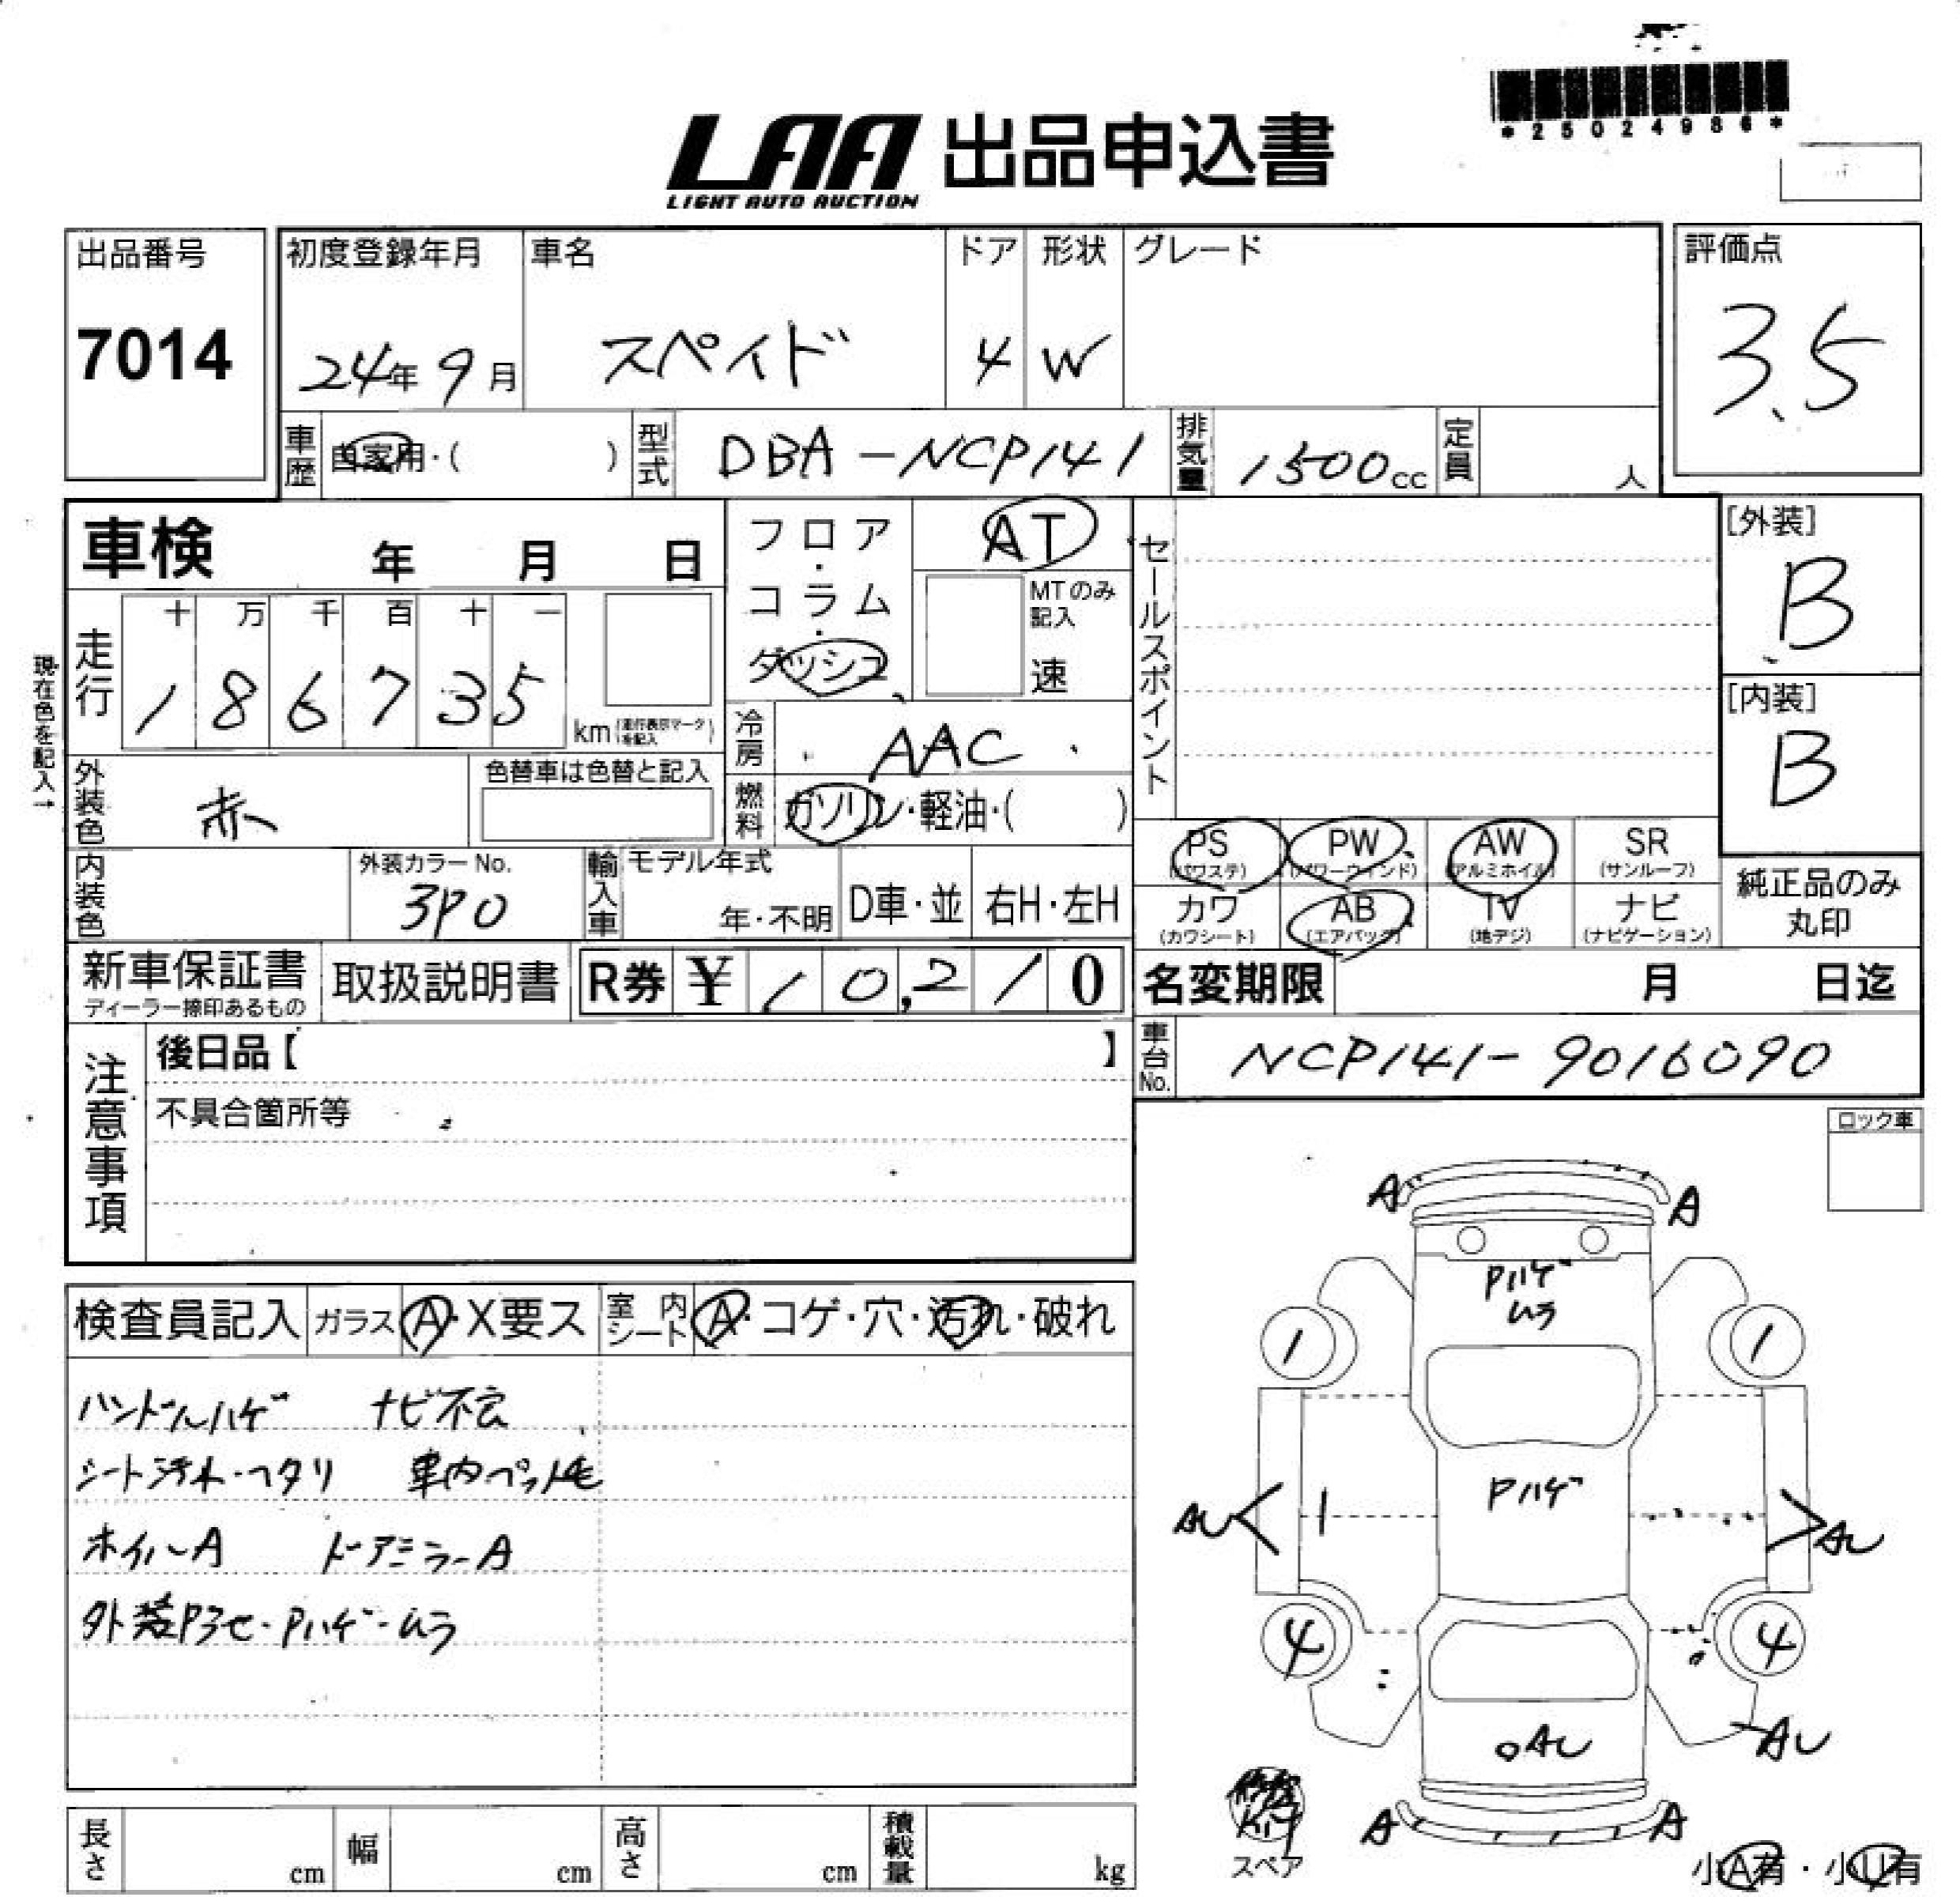 *25024986*
LAA 出品申込書
LIGHT AUTO AUCTION
出品番号
7014
初度登録年月
24年9月
車名
スペイド
ドア
4
形状
W
グレード
評価点
3.5
車歴 自家用・( )
型式 DBA-NCP141
排気量 1500cc
定員 人
車検 年 月 日
フロア・コラム・ダッシュ
AT
MTのみ記入
速
セールスポイント
[外装]
B
[内装]
B
現在色を記入→
走行
十 万 千 百 十 一
1 8 6 7 3 5 km(走行表示マークを記入)
冷房 AAC
燃料 ガソリン・軽油・( )
外装色 赤
色替車は色替と記入
内装色
外装カラーNo.
3P0
輸入車 モデル年式
年・不明 D車・並 右H・左H
PS (パワステ)
PW (パワーウインド)
AW (アルミホイル)
SR (サンルーフ)
カワ (カワシート)
AB (エアバック)
TV (地デジ)
ナビ (ナビゲーション)
純正品のみ
丸印
新車保証書
ディーラー捺印あるもの
取扱説明書
R券 ¥ 10,210
名変期限 月 日迄
車台No. NCP141-9016090
注意事項
後日品【 】
不具合箇所等
ロック車
検査員記入 ガラス A・X要ス 室内シート A・コゲ・穴・汚れ・破れ
ハンドルハゲ ナビ不云
シート汚れ・ヘタリ 車内ペット毛
ホイールA ドアミラーA
外装Pヤセ・Pハゲ・ムラ
A A
Pハゲ
ムラ
1 1
Pハゲ
AU AU
4 4
AU AU
A A
スペア
小A有・小U有
長さ cm 幅 cm 高さ cm 積載量 kg